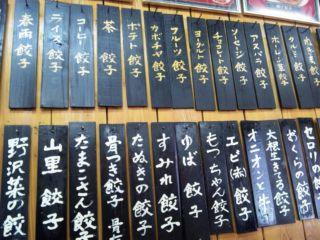 ほうれん草餃子
アスパラ餃子
ソーセージ餃子
チョコレート餃子
ヨーグルト餃子
フルーツ餃子
カボチャ餃子
ポテト餃子
茶餃子
コーヒー餃子
ライス餃子
春雨餃子
セロリの
ざくらの餃子
大根生きてる餃子
オニオンと牛
エビ㈲餃子
もっちゃん餃子
ゆば餃子
すみれ餃子
たぬきの餃子
骨つき餃子
たまこさん餃子
山里餃子
野沢菜の餃子